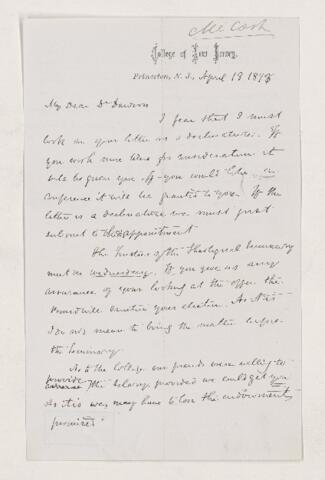 McCosh
College of New Jersey,
Princeton, N. J., April 19 1878
My Dear Dr Dawson
I fear that I must
look on your letter as a declinature. If
you wish more time for consideration it
will be given you. If you would like a
conference it will be granted to you. If the
letter is a declinature we must just
submit to the disappointment
The Trustees of the Theological Seminary
meet on Wednesday. If you give us any
assurance of your looking at the offer the
will your election. As it is
I do not mean to bring the matter before
the Seminary
As to the College our friends were willing to
provide the salary provided we could get you
As it is we may have to lose the endowment
promised